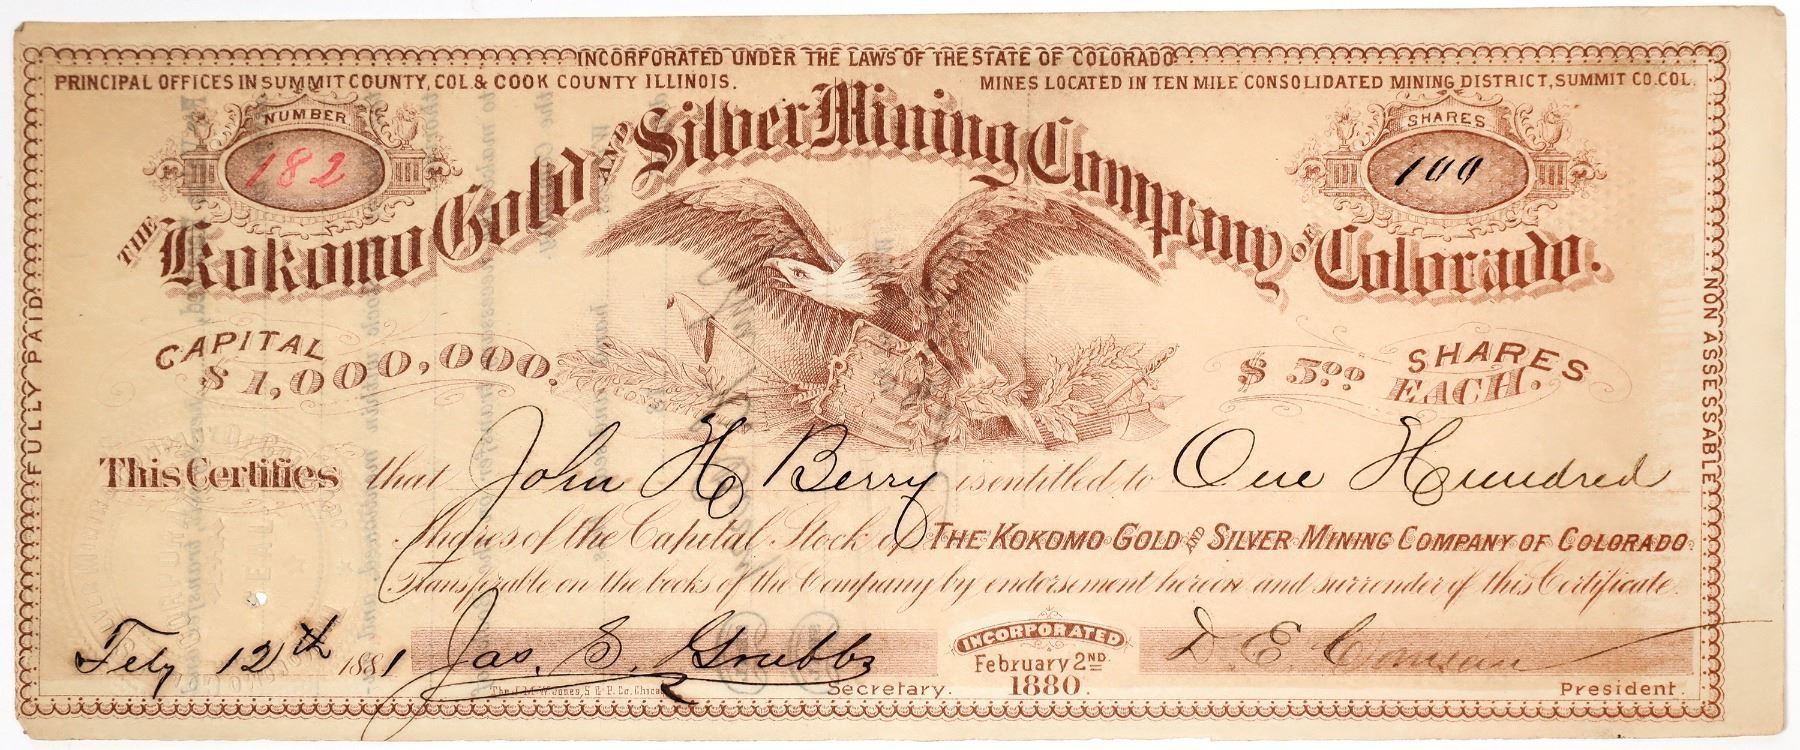 INCORPORATED UNDER THE LAWS OF THE STATE OF COLORADO
PRINCIPAL OFFICES IN SUMMIT COUNTY, COL. & COOK COUNTY ILLINOIS.
MINES LOCATED IN TEN MILE CONSOLIDATED MINING DISTRICT, SUMMIT CO. COL.
NUMBER
182
SHARES
100
THE Kokomo Gold AND Silver Mining Company OF Colorado.
FULLY PAID.
NON ASSESSABLE.
CAPITAL
$1,000,000.
$5.00 SHARES EACH.
This Certifies that John H Berry is entitled to One Hundred
Shares of the Capital Stock of THE KOKOMO GOLD AND SILVER MINING COMPANY OF COLORADO
Transferable on the books of the Company by endorsement hereon and surrender of this Certificate.
Feby 12th 1881
Jas. S. Grubbs
Secretary.
INCORPORATED
February 2ND
1880.
D E
President.
The J. M. W. Jones, S & P. Co. Chica